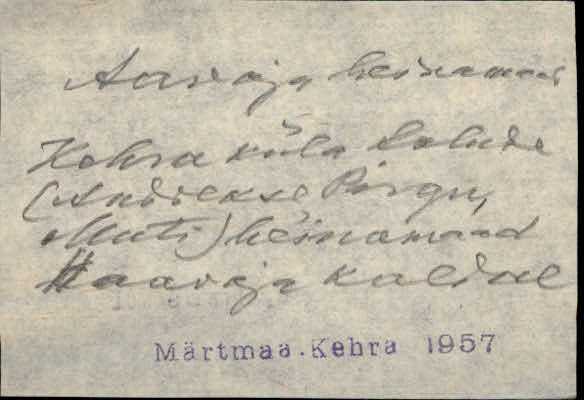 Aavoja heinamaad
Kehra küla talude
(Andrekse Pirgu,
Muti) heinamaad
Haavoja kaldal
Märtmaa.Kehra 1957